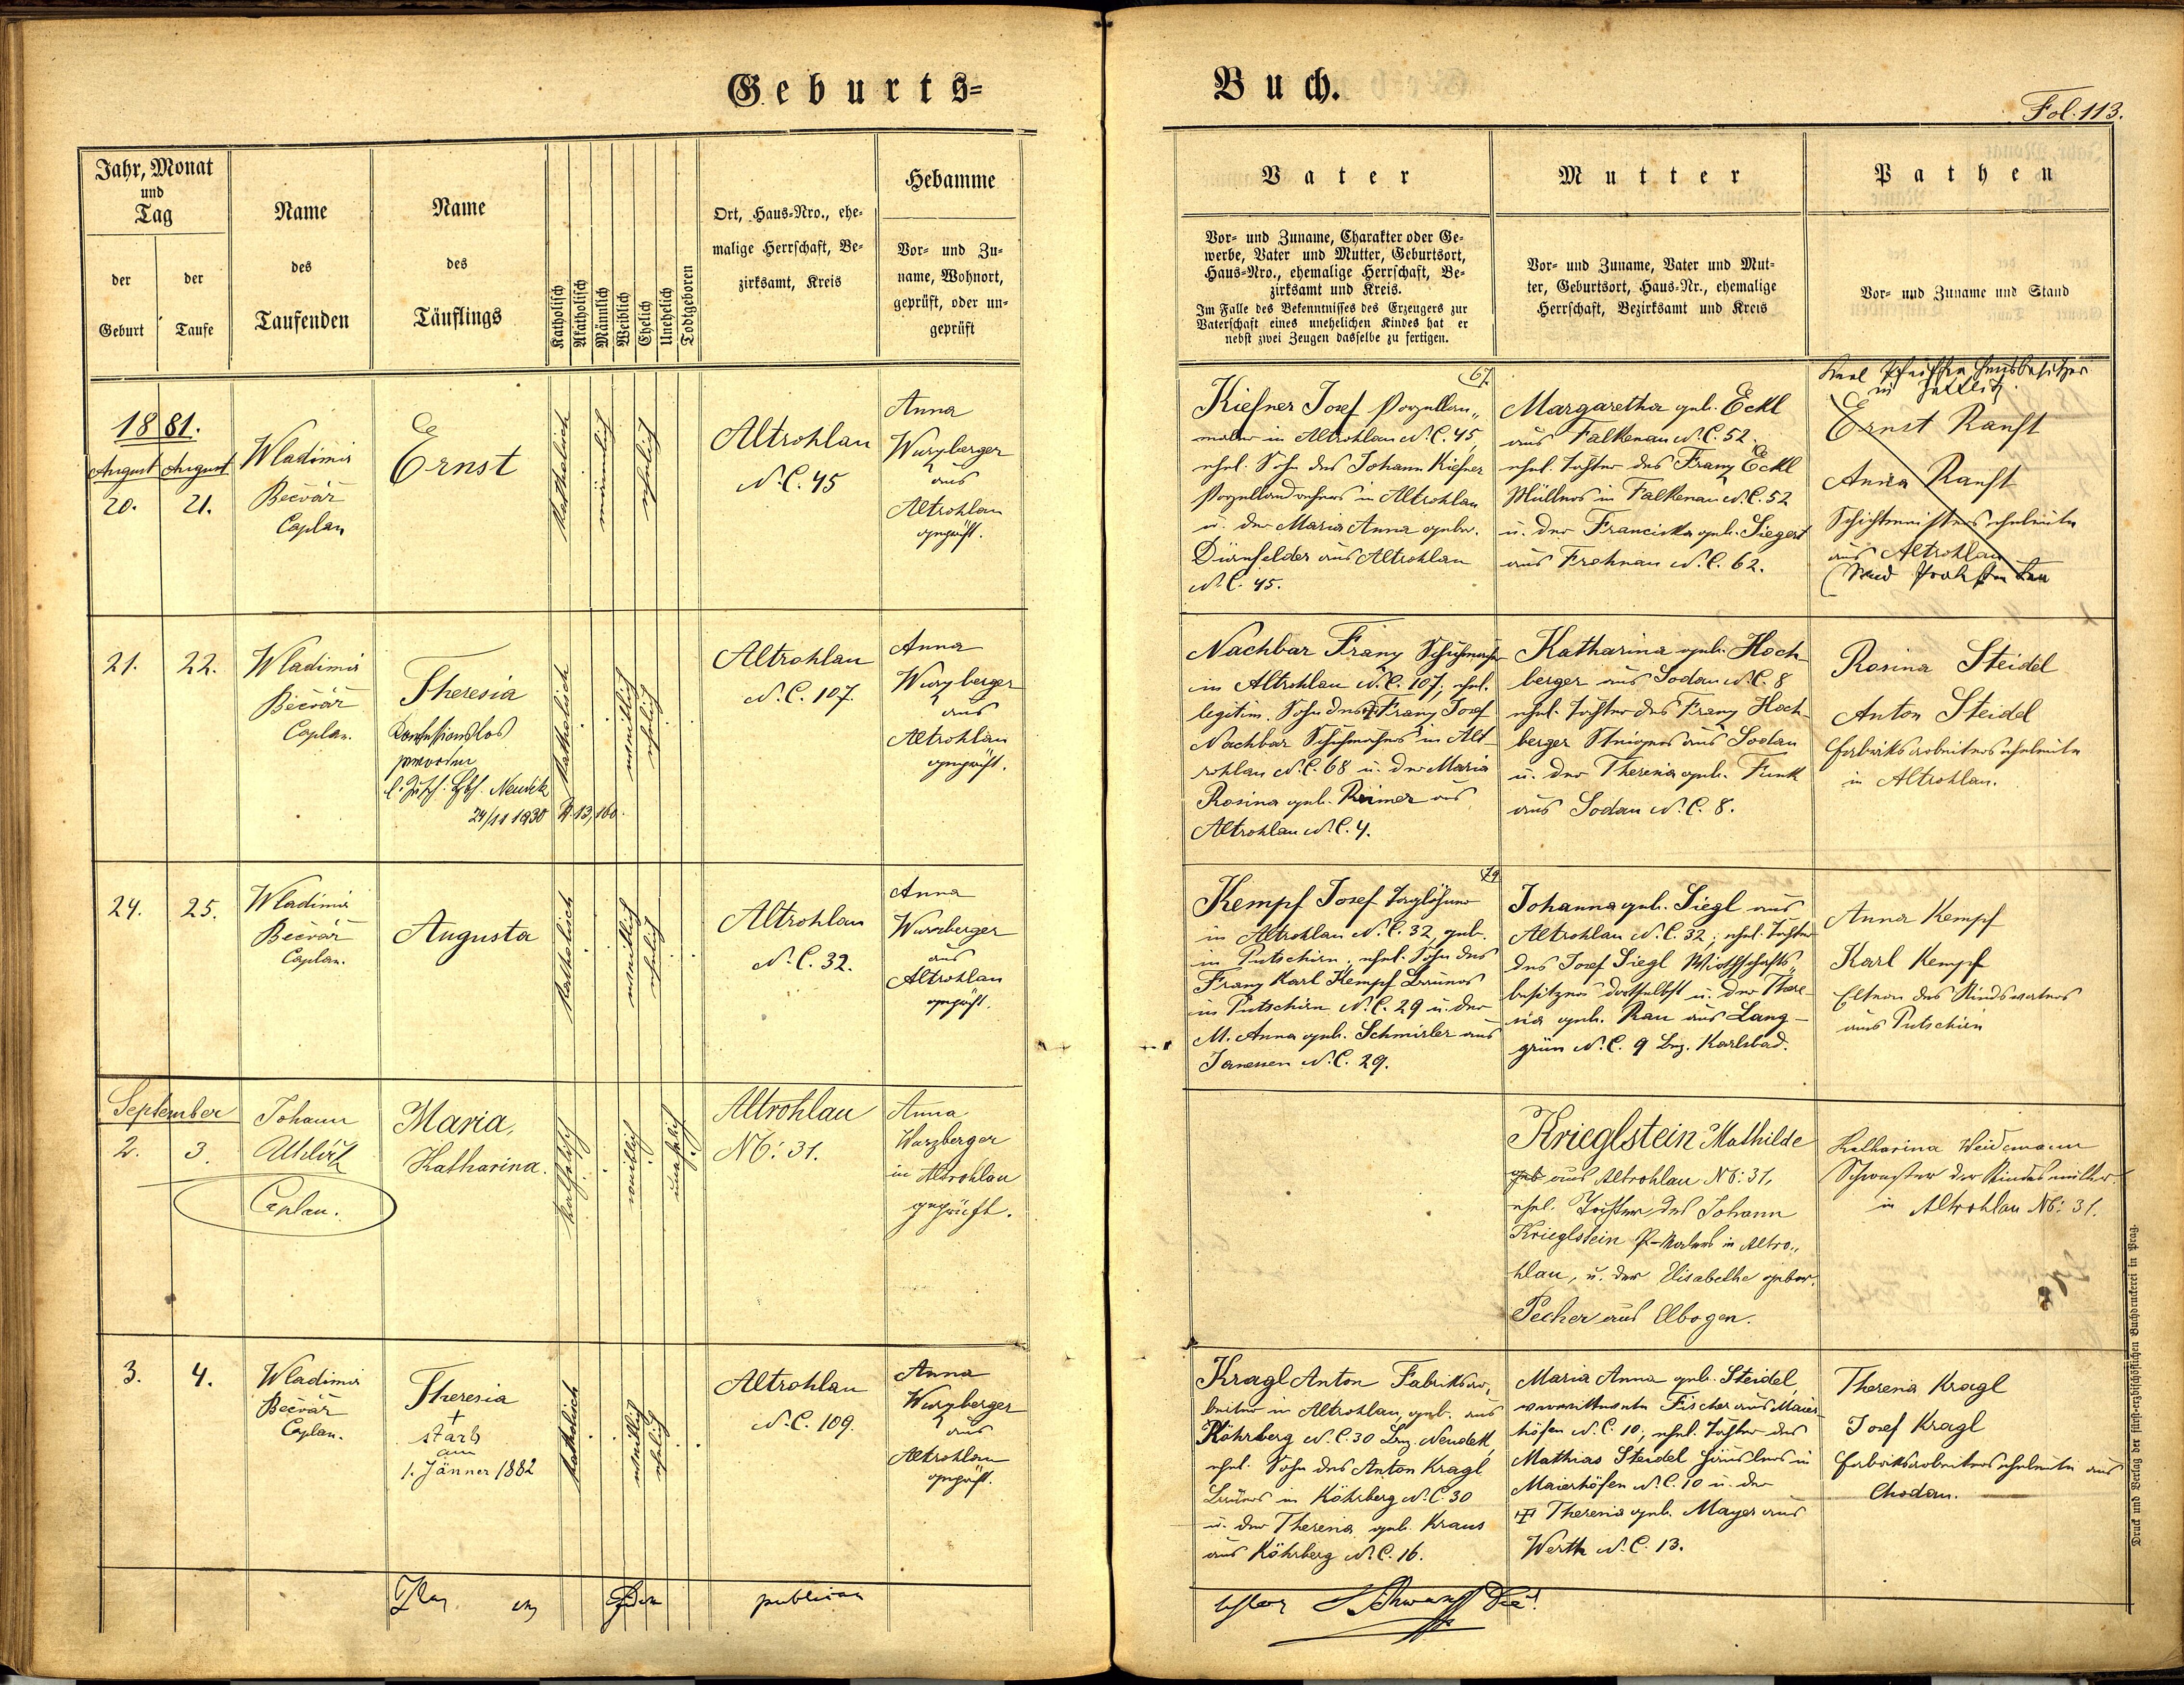 Geburts=
Buch.
Fol. 113.
Jahr, Monat
und
Tag
der
Geburt
der
Taufe
Name
des
Taufenden
Name
des
Täuflings
Katholisch
Akatholisch
Männlich
Weiblich
Ehelich
Unehelich
Todtgeboren
Ort, Haus=Nro., ehe=
malige Herrschaft, Be=
zirksamt, Kreis
Hebamme
Vor= und Zu=
name, Wohnort,
geprüft, oder un=
geprüft
Vater
Vor= und Zuname, Charakter oder Ge=
werbe, Vater und Mutter, Geburtsort,
Haus=Nro., ehemalige Herrschaft, Be=
zirksamt und Kreis.
Im Falle des Bekenntnisses des Erzeugers zur
Vaterschaft eines unehelichen Kindes hat er
nebst zwei Zeugen dasselbe zu fertigen.
Mutter
Vor= und Zuname, Vater und Mut=
ter, Geburtsort, Haus=Nr., ehemalige
Herrschaft, Bezirksamt und Kreis
Pathen
Vor= und Zuname und Stand
1881.
August August
20. 21.
Wladimir
Bečvář
Caplan
Ernst
katholisch
männlich
ehelich
Altrohlau
N.C. 45
Anna
Wurzberger
aus
Altrohlau
geprüft.
67.
Kiefner Josef Porzellan„
maler in Altrohlau N.C. 45,
ehel. Sohn des Johann Kiefner
Porzellandrehers in Altrohlau
u. der Maria Anna gebor.
Dürnfelder aus Altrohlau
N.C. 45.
Margaretha geb. Eckl
aus Falkenau N.C. 52.
ehel. Tochter des Franz Eckl
Müllers in Falkenau N.C. 52
u. der Franciska geb. Siegert
aus Frohnau N.C. 62.
Hausbesitzer
in
Ernst Ranft
Anna Ranft
Schichtmeisterseheleute
aus Altrohlau
21. 22.
Wladimir
Bečvář
Caplan.
Theresia
Konfessionslos
geworden
Neudek
24/11 1930 13,160.
katholisch
weiblich
ehelich
Altrohlau
N.C. 107.
Anna
Wurzberger
aus
Altrohlau
geprüft.
Nachbar Franz Schuhmacher
in Altrohlau N.C. 107; ehel.
legitim. Sohn des Franz Josef
Nachbar Schuhmachers in Alt-
rohlau N.C. 68 u. der Maria
Rosina geb. Reimer aus
Altrohlau N.C. 4.
Katharina geb. Hoch-
berger aus Sodau N.C. 8
ehel. Tochter des Franz Hoch-
berger Steigers aus Sodau
u. der Theresia geb. Funk
aus Sodau N.C. 8.
Rosina Steidel
Anton Steidel
Fabriksarbeiterseheleute
in Altrohlau.
24. 25.
Wladimir
Bečvář
Caplan.
Augusta
katholisch
weiblich
ehelich
Altrohlau
N.C. 32.
Anna
Wurzberger
aus
Altrohlau
geprüft.
79
Kempf Josef Taglöhner
in Altrohlau N.C. 32, geb.
in Putschirn, ehel. Sohn des
Franz Karl Kempf Bauers
in Putschirn N.C. 29 u. der
M. Anna geb. Schmirler aus
Janessen N.C. 29.
Johanna geb. Siegl aus
Altrohlau N.C. 32; ehel. Tochter
des Josef Siegl Wirthschafts„
besitzers dortselbst u. der There-
sia geb. Rau aus Lang-
grün N.C. 9 Bez. Karlsbad.
Anna Kempf
Karl Kempf
Eltern des Kindsvaters
aus Putschirn
September
2. 3.
Johann
Caplan.
Maria,
Katharina.
katholisch
weiblich
unehelich
Altrohlau
NC: 31.
Anna
Warzberger
in Altrohlau
geprüft.
Krieglstein Mathilde
geb aus Altrohlau NC: 31,
ehel. Tochter des Johann
Krieglstein P-Malers in Altro„
hlau, u. der Elisabethe gebor.
Pecher aus Elbogen.
Katharina Weidemann
Schwester der Kindesmutter.
in Altrohlau NC: 31.
3. 4.
Wladimir
Bečvář
Caplan.
Theresia
+
starb
am
1. Jänner 1882
katholisch
weiblich
ehelich
Altrohlau
N.C. 109.
Anna
Wurzberger
aus
Altrohlau
geprüft.
Kragl Anton Fabriksar„
beiter in Altrohlau, geb. aus
Köhrberg N.C. 30 Bez. Neudek,
ehel. Sohn des Anton Kragl
Bauers in Köhrberg N.C. 30
u. der Theresia geb. Kraus
aus Köhrberg N.C. 16.
Maria Anna geb. Steidel,
verwittwete Fischer aus Maier-
höfen N.C. 10; ehel. Tochter des
Mathias Steidel Häuslers in
Maierhöfen N.C. 10 u. der
Theresia geb. Mayer aus
Werth N.C. 13.
Theresia Kragl
Josef Kragl
Fabriksarbeiterseheleute aus
Chodau.
Druck und Verlag der fürst=erzbischöflichen Buchdruckerei in Prag.